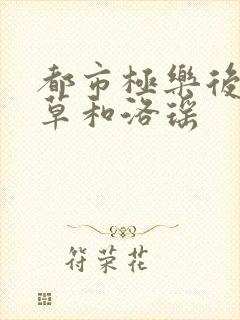 都市極樂後
草和洛瑶
符荣花